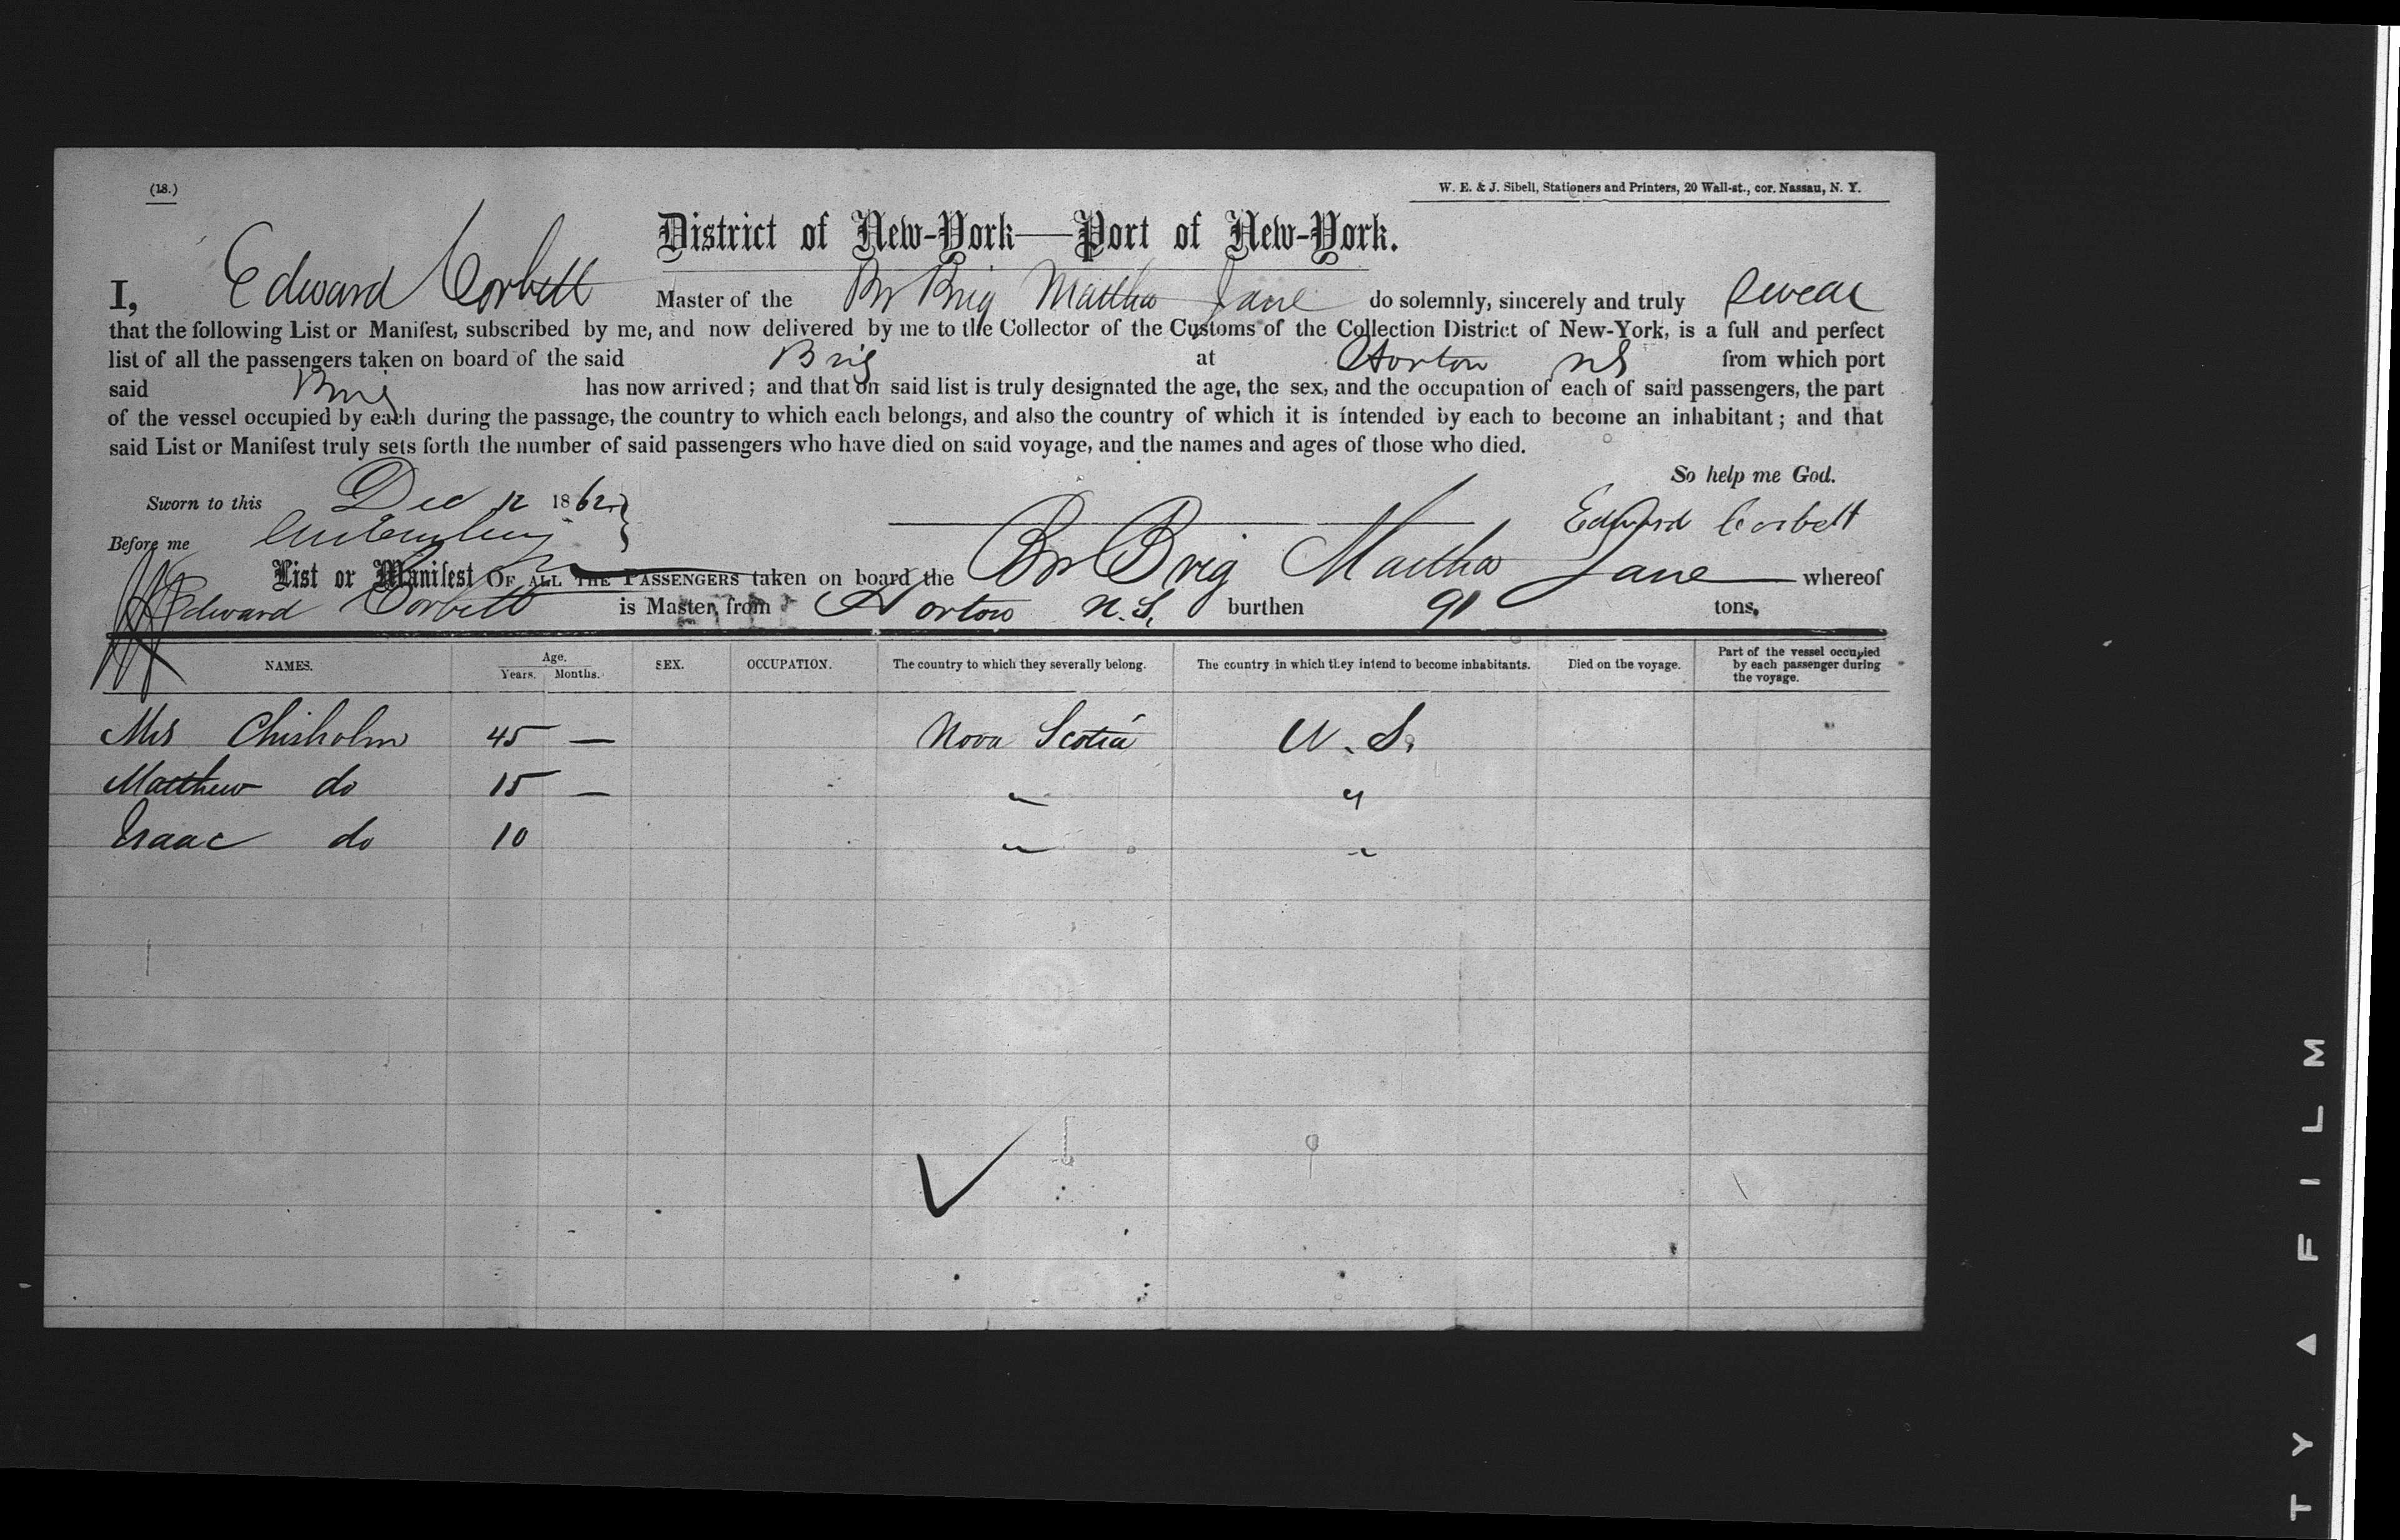 (18.)
W. E. & J. Sibell, Stationers and Printers, 20 Wall-st., cor. Nassau, N. Y.
District of New-York—Port of New-York.
I, Edward Corbett Master of the Br Brig Martha Jane do solemnly, sincerely and truly swear
that the following List or Manifest, subscribed by me, and now delivered by me to the Collector of the Customs of the Collection District of New-York, is a full and perfect
list of all the passengers taken on board of the said Brig at Horton NS from which port
said Brig has now arrived; and that on said list is truly designated the age, the sex, and the occupation of each of said passengers, the part
of the vessel occupied by each during the passage, the country to which each belongs, and also the country of which it is intended by each to become an inhabitant; and that
said List or Manifest truly sets forth the number of said passengers who have died on said voyage, and the names and ages of those who died.
So help me God.
Sworn to this Dec 12 1862
Edward Corbett
Before me
List or Manifest OF ALL THE PASSENGERS taken on board the Br Brig Martha Jane whereof
Edward Corbett is Master, from Horton N.S. burthen 91 tons.
NAMES. Age. Years. Months. SEX. OCCUPATION. The country to which they severally belong. The country in which they intend to become inhabitants. Died on the voyage. Part of the vessel occupied by each passenger during the voyage.
Mrs Chisholm 45 — Nova Scotia U. S.
Matthew do 15 — " "
Isaac do 10 " "
TY ▲ FILM